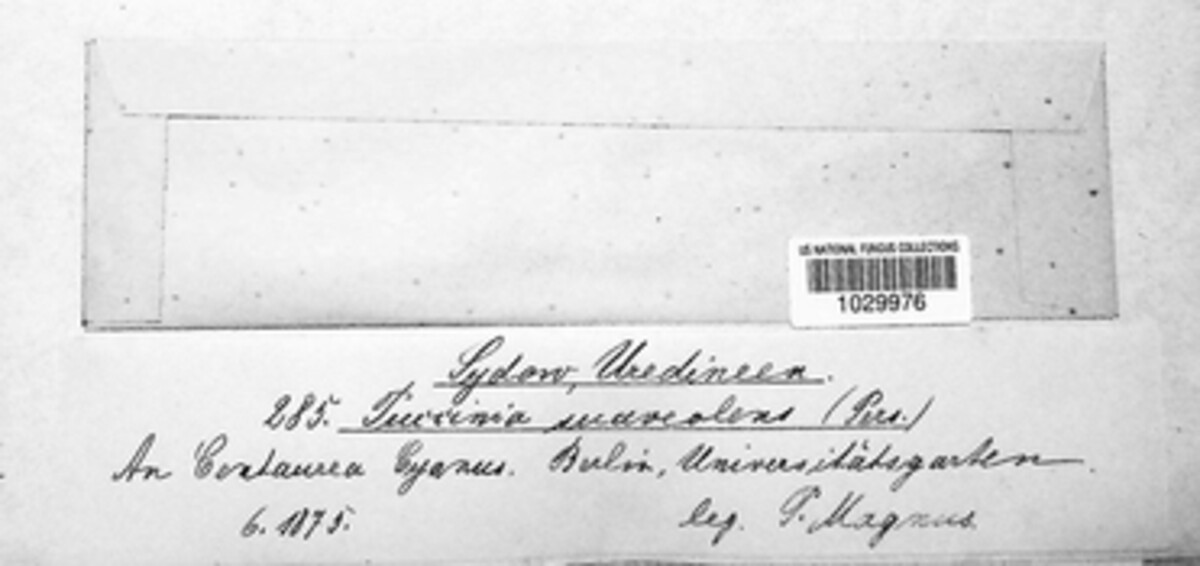 US NATIONAL FUNGUS COLLECTIONS
1029976
Sydow, Uredineen.
285. Puccinia suaveolens (Pers.)
An Centaurea Cyanus. Berlin, Universitätsgarten.
6. 1875.
leg. P. Magnus.